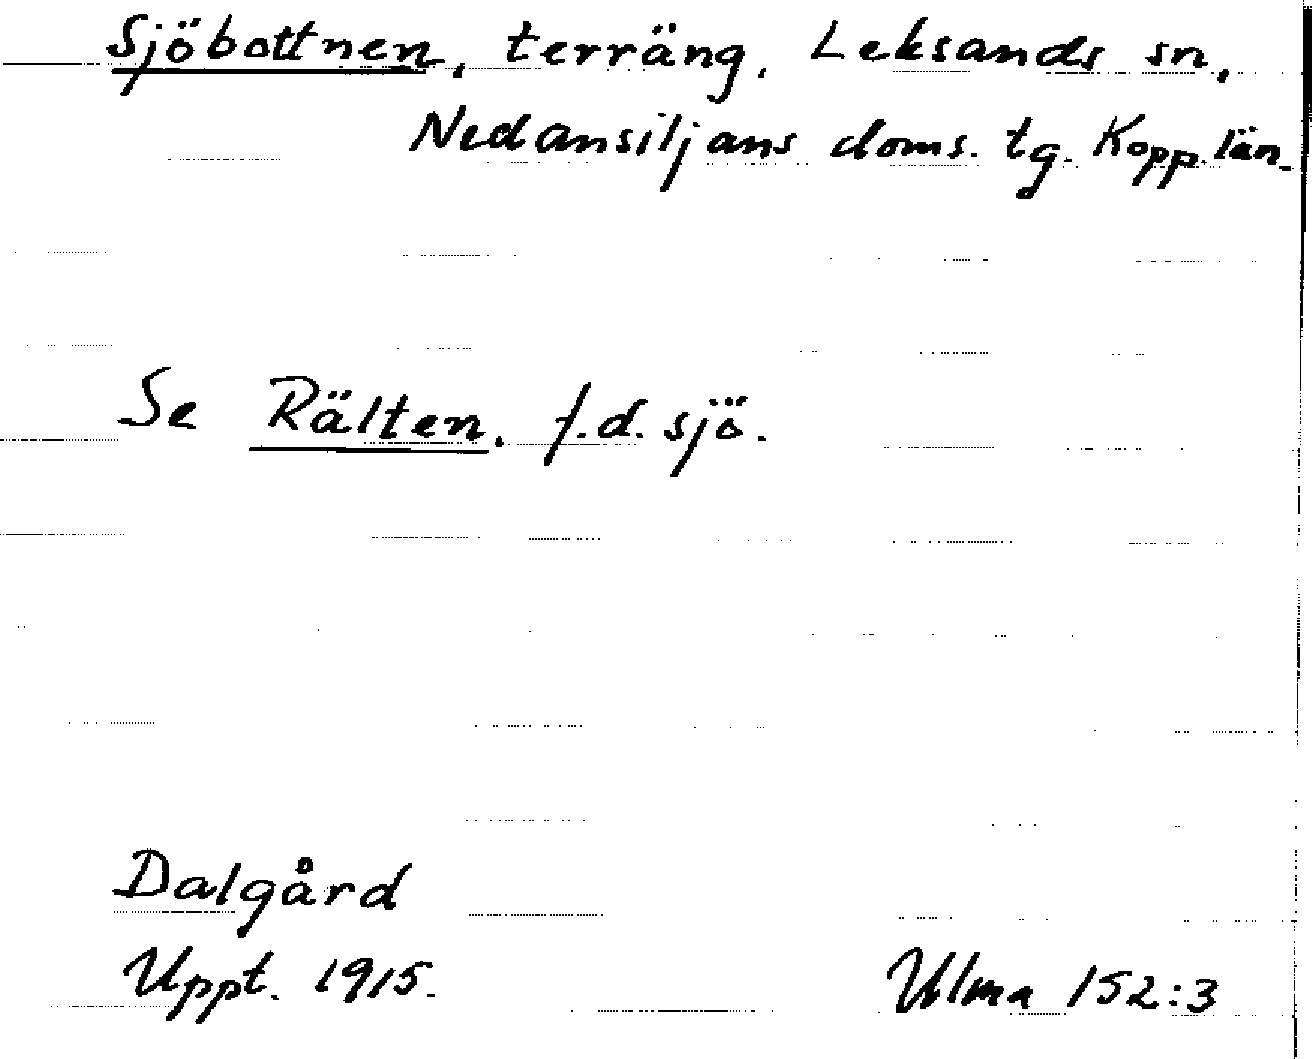 Sjöbottnen, terräng, Leksands sn,
Nedansiljans doms. tg. Kopp. län.
Se Rälten, f.d. sjö.
Dalgård
Uppt. 1915.
Ulma 152:3